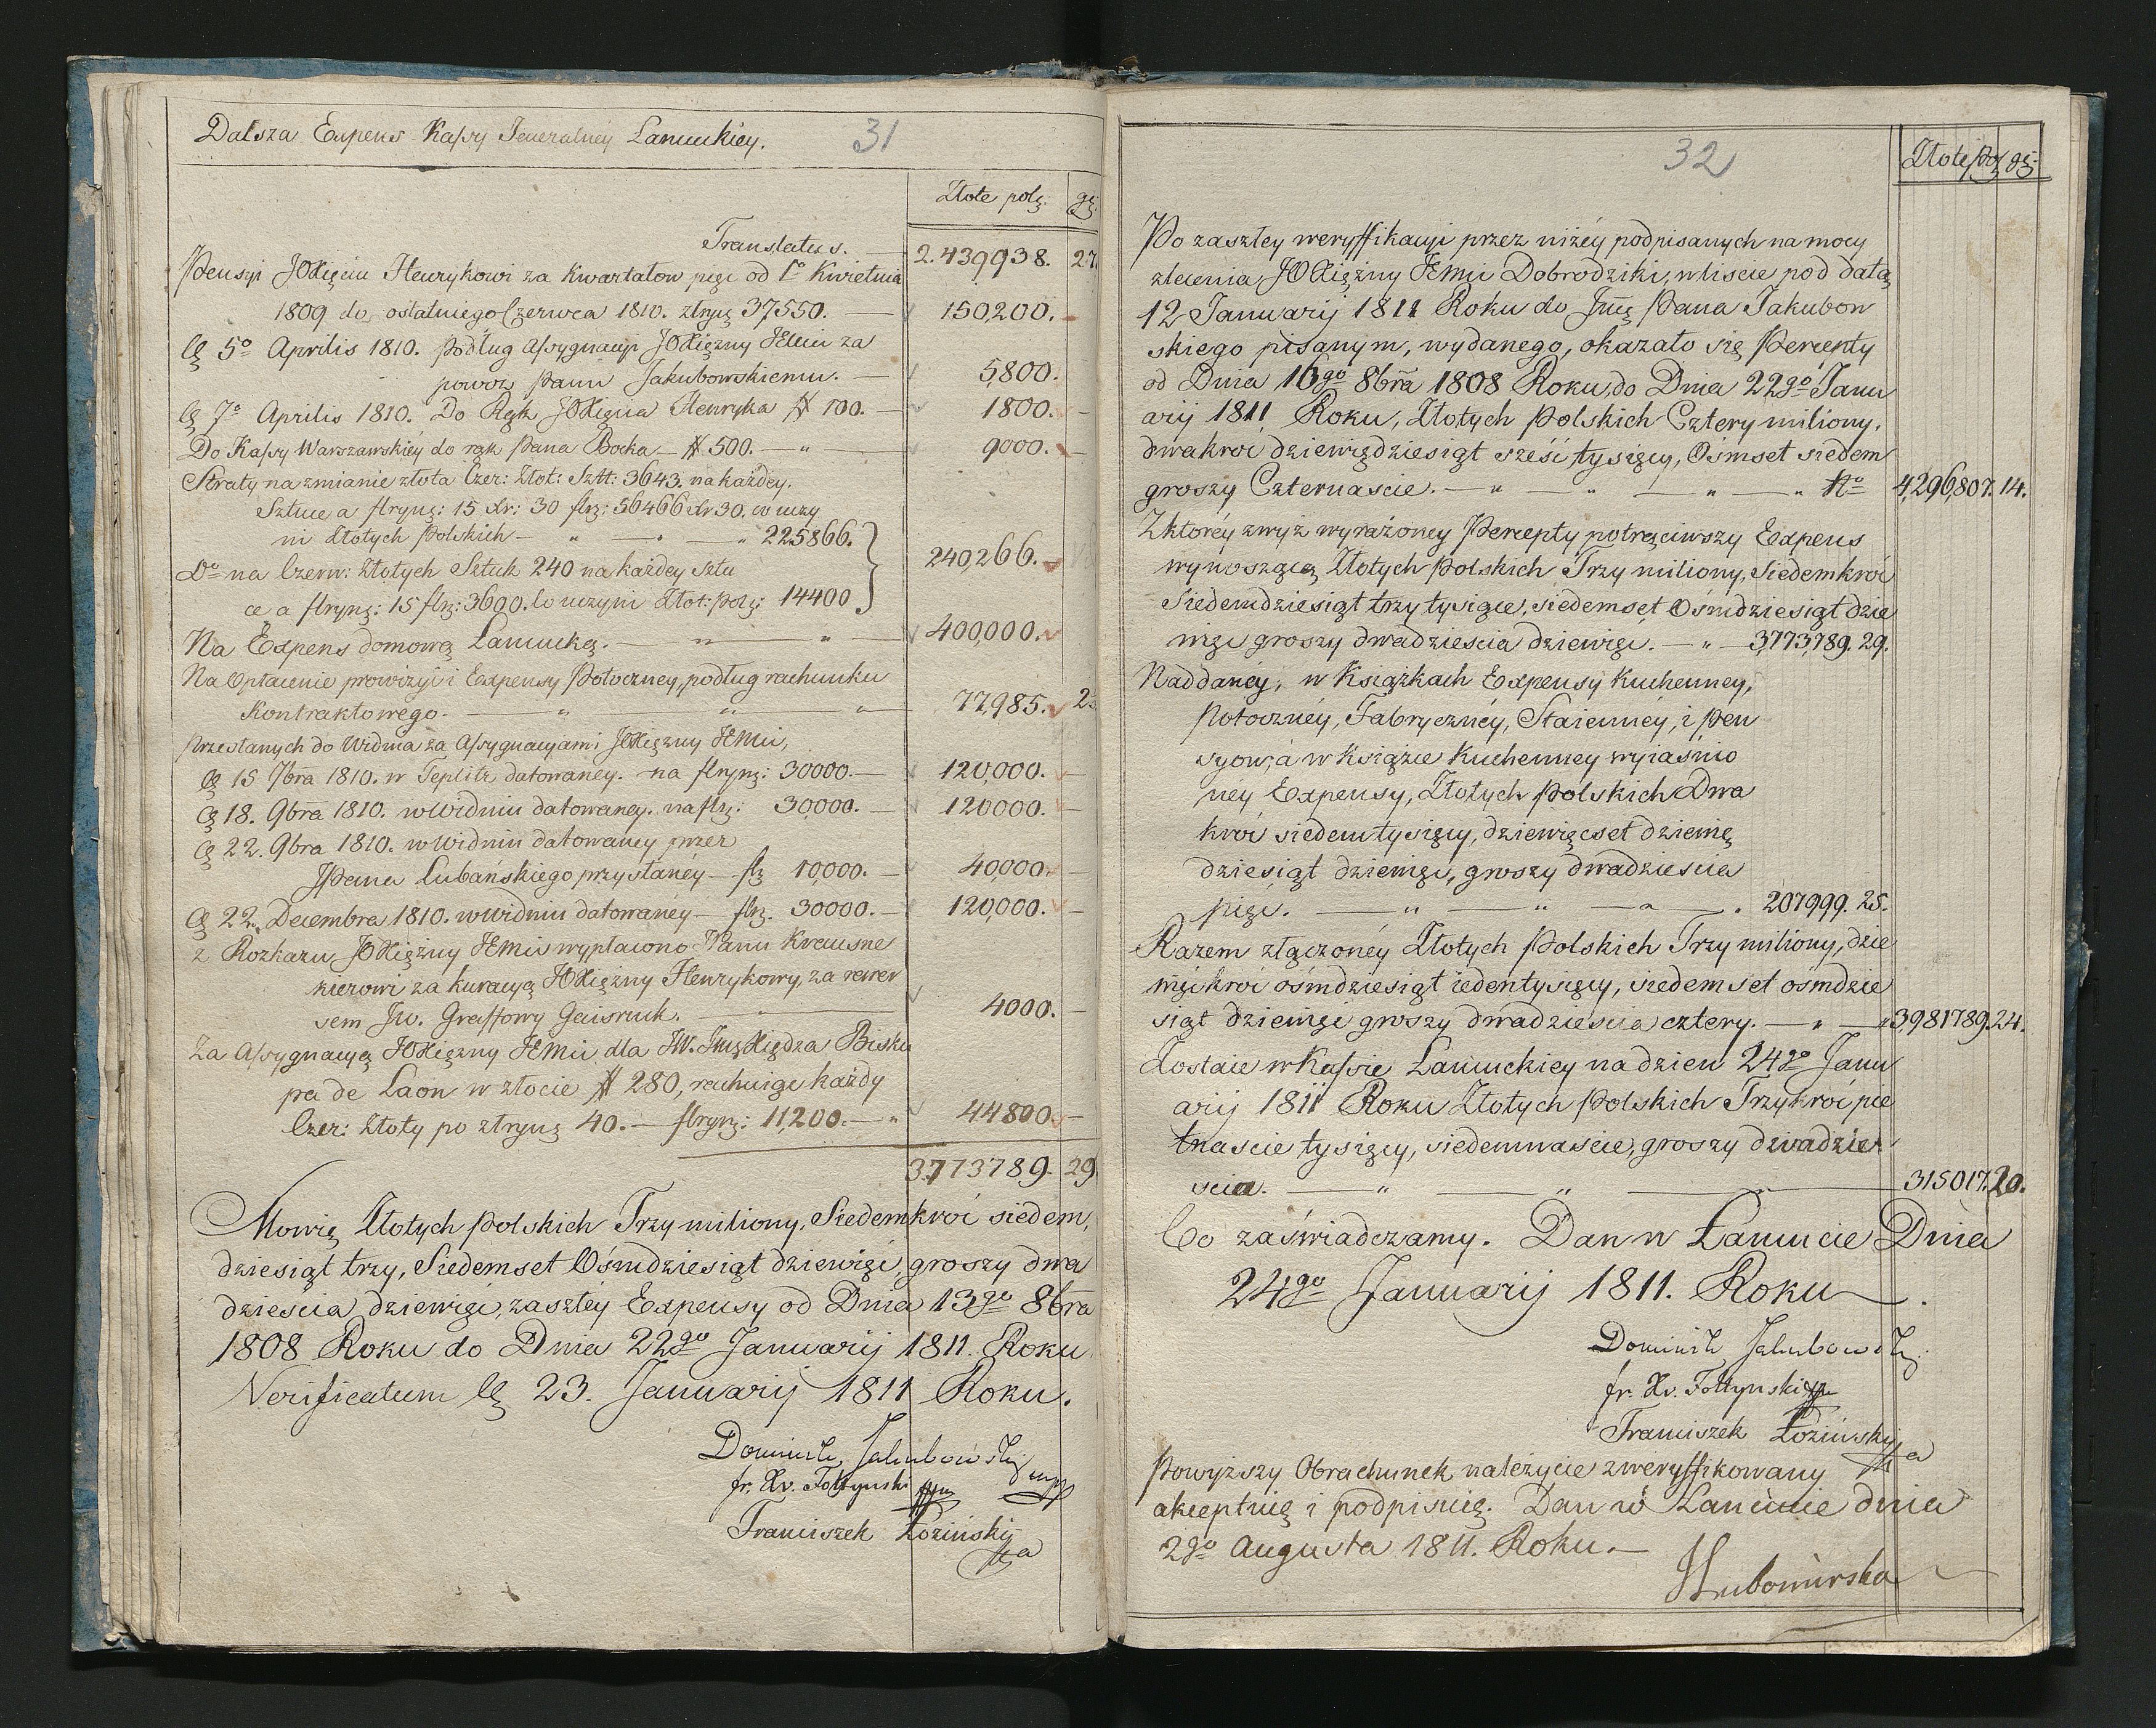 Dalsza Expens Kassy Jeneralney Łancuckiey. 31
Złote polę. gę.
Translatus. 2.439938. 27
Pensyi JOXięciu Henrykowi za kwartałow pięć od 1o Kwietnia
1809 do ostatniego Czerwca 1810. złryng 37550. — 150200. —
Cę 5o Aprilis 1810. Podług Assygnacyi JOXiężny JEMci za
powoz Panu Jakubowskiemu. — 5,800.
Cę 7o Aprilis 1810. Do Rąk JOXięcia Henryka # 100. — 1800. —
Do Kassy Warszawskiey do rąk Pana Bocka — # 500. — " — 9000. —
Straty na zmianie złota Czer: Złot: Sztt: 3643. na każdey.
Sztuce a flryng: 15 Xr: 30 flrę: 56466 Xr 30. co uczy
ni Złotych Polskich — " — " — " 225866.
Do na Czerw: Złotych Sztuk 240 na każdey Sztu 240,266.
ce a flryng: 15 flrę: 3600. co uczyni Złot: polę: 14400
Na Expens domową Łancucką. — " — " — 400,000.
Na Opłacenie prowizyi i Expensy Potoczney, podług rachunku
Kontraktowego. — " — " — " 77,985. 2
Przesłanych do Widnia za Assygnacyami JOXiężny JEMci,
Cę 15 7bra 1810. w Teplitz datowaney. na flryng: 30000. — 120,000. —
Cę 18. 9bra 1810. w Widniu datowaney. na flrę: 30,000. — 120000. —
Cę 22. 9bra 1810. w Widniu datowaney przez
JPana Lubańskiego przysłaney — flrę 10,000. — 40,000. —
Cę 22. Decembra 1810. w Widniu datowaney — flrę. 30000. — 120,000. —
z Rozkazu JOXiężny JEMci wypłacono Panu Krausne
kierowi za kuracyą JOXiężny Henrykowy, za rewer
sem JW. Graffowy Gaisruck. — " — 4000. —
Za Assygnacyą JOXiężny JEMci dla JW. Jmę Xiędza Bisku
pa de Laon w złocie # 280, rachuiąc każdy
Czer: Złoty po złryng 40. — flryng: 11,200. — " 44800. —
3,773789. 29
Mowię Złotych Polskich Trzy miliony, Siedemkroć siedem,
dziesiąt trzy, Siedemset Ośmdziesiąt dziewięć, groszy dwa
dzieścia dziewięć, zaszłey Expensy od Dnia 13go 8bra
1808 Roku do Dnia 22go Januarij 1811. Roku
Verificatum Cę 23. Januarij 1811 Roku.
Dominik Jakubowski
fr. Xv. Fołtynski
Franciszek Łoziński
32
Złote Pol gę
Po zaszłey weryffikacyi przez niżey podpisanych na mocy
zlecenia JOXiężny JEMci Dobrodziki, w liscie pod datą
12 Januarij 1811 Roku do Jmę Pana Jakubow
skiego pisanym, wydanego, okazało się Percepty
od Dnia 16go 8bra 1808 Roku, do Dnia 22go Janu
arij 1811 Roku, Złotych Polskich Cztery miliony,
dwakroć dziewięćdziesiąt sześć tysięcy, Ośmset siedem
groszy Czternaście. — " — " — " — " No 4,296,807. 14.
Z ktorey zwyż wyrażoney Percepty potrąciwszy Expens
wynoszącą Złotych Polskich Trzy miliony, Siedemkroć
Siedemdziesiąt trzy tysiące, siedemset Ośmdziesiąt dzie
więć groszy dwadzieścia dziewięć. — " — 3,773,789. 29.
Naddaney, w Książkach Expensy Kuchenney,
Potoczney, Fabryczney, Staienney, i Pen
syowa, w Xiążce Kuchenney wyiaśnio
ney Expensy, Złotych Polskich Dwa
kroć siedem tysięcy, dziewięcset dziewię
dziesiąt dziewięć, groszy dwadzieścia
pięć. — " — " — " — . 207999. 25.
Razem złączoney Złotych Polskich Trzy miliony, dzie
więćkroć ośmdziesiąt ieden tysięcy, siedemset ośmdzie
siąt dziewięć groszy dwadzieścia cztery. — " — " 3,981789. 24.
Zostaie w Kassie Łancuckiey na dzien 24go Janu
arij 1811 Roku Złotych Polskich Trzykroć pię
tnascie tysięcy, siedemnaście, groszy dwadzie
ścia. — " — " — " 315017. 20.
Co zaświadczamy. Dan w Łancucie Dnia
24go Januarij 1811. Roku
Dominik Jakubowski
fr. Xv. Fołtynski
Franciszek Łoziński
Powyższy Obrachunek należycie zweryffikowany
akceptuię i podpisuię. Dan w Łancucie dnia
2go Augusta 1811. Roku. —
Lubomirska